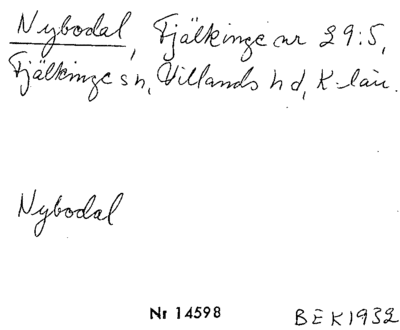 Nybodal, Fjälkinge nr 29:5,
Fjälkinge sn, Villands hd, K-län.
Nybodal
Nr 14598
BEK1932